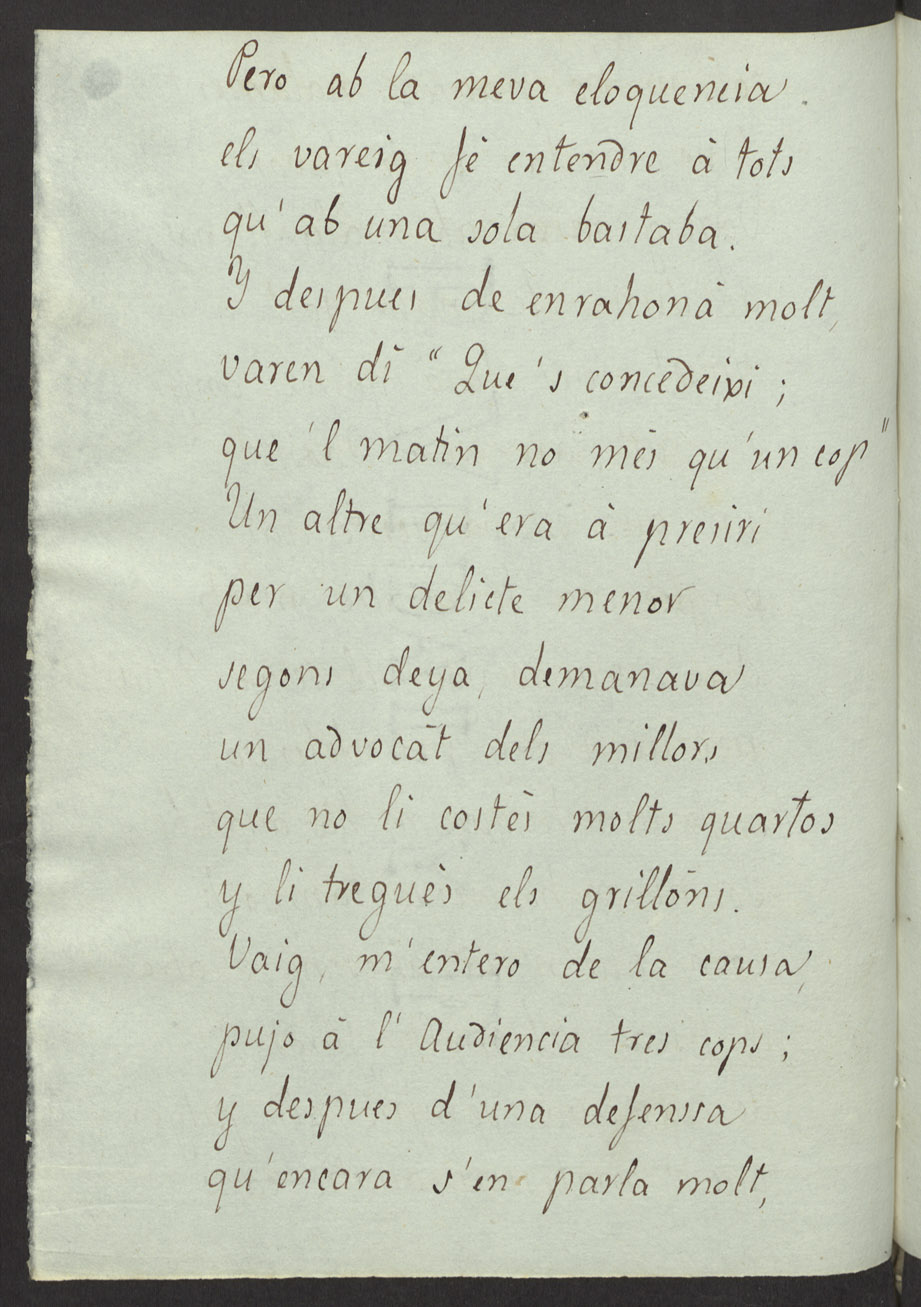 Pero ab la meva eloquencia.
els vareig fè entendre à tots
qu'ab una sola bastaba.
Y despues de enrahonà molt,
varen dì "Que's concedeixi;
que'l matin no mès qu'un cop"
Un altre qu'era à presiri
per un delicte menor
segons deya, demanava
un advocàt dels millors
que no li costès molts quartos
y li treguès els grillóns.
Vaig, m'entero de la causa,
pujo à l'Audiencia tres cops;
y despues d'una defenssa
qu'encara s'en parla molt,